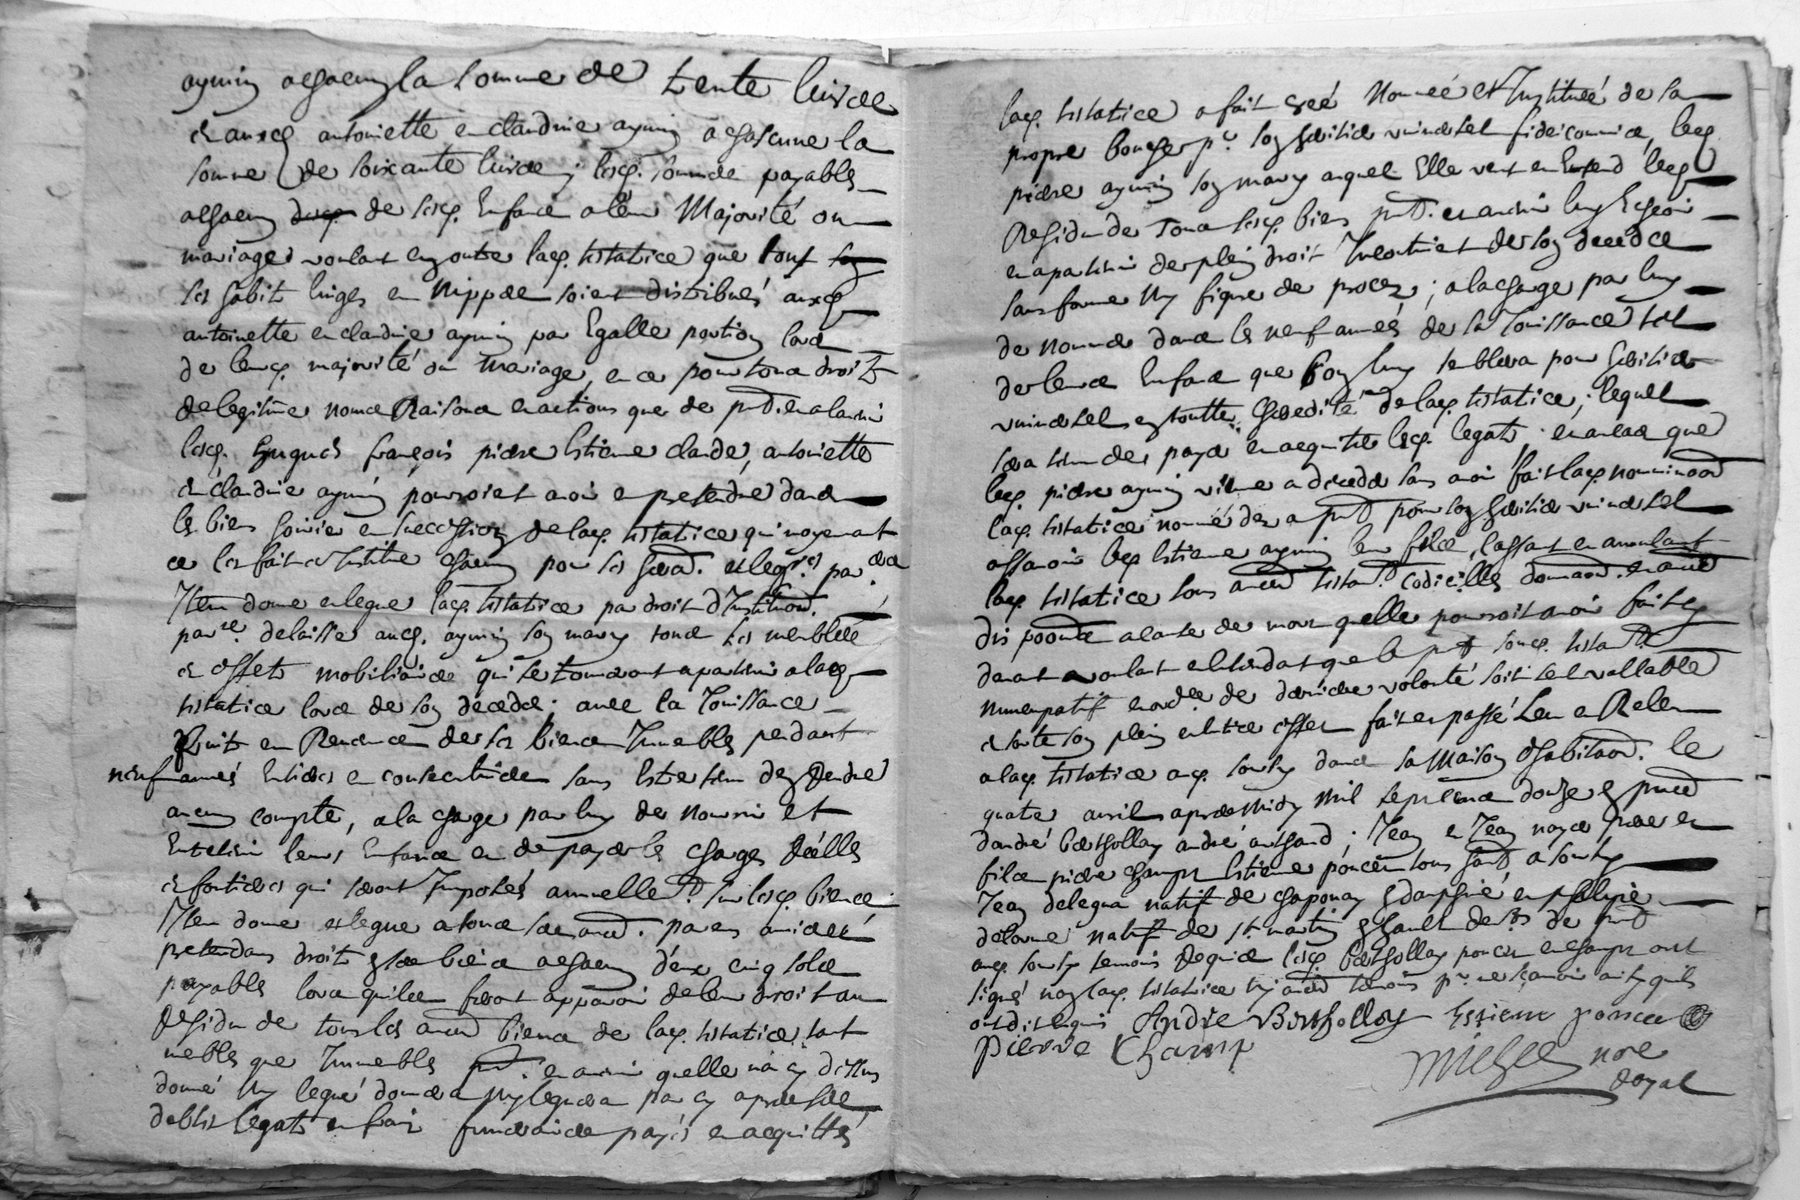 aymin a chacun la somme de trente livres
et auxq antoinette et claudine aymin a chascune la
somme de soixante livres ; lesq. sommes payables
a chacun de sesq. Enfans a leur Majorité ou
mariage ; voulant en outre laq. testatrice que tous
ses habits linges et nippes soient distribués auxq
antoinette et claudine aymin par Egalle portion lors
de leurq. majorité ou mariage, et ce pour tous droits
de legitime noms Raisons et actions que de pnt. et a ladvenir
lesq. hugues françois pierre Estienne claude, antoinette
et claudine aymin pourroient avoir et pretendre dans
les biens hoirie et succession de laq. testatrice qui moyenant
ce les fait et Institue chacun pour ses herd.
Item donne et legue laq. testatrice par droit d'Instituon.
parre. delaisse audq. aymin son mary tous ses meubles
et effets mobiliaires qui se trouveront apartenir a laq
testatrice lors de son deces ; avec la Jouissance
fruits et Revenus de ses biens Immeubles pendant
neuf années Entieres et consecutives sans Estre tenu d'en Rendre
aucun compte, a la charge par luy de nourrir et
Entretenir leurs Enfans et de payer les charges Réélles
et fontieres qui seront Imposées annuellemt. sur lesq. biens
Item donne et legue a tous ses parens amis et
pretendans droits es biens a chacun d'eux cinq sols
payables lors qu'ils feront apparoir de leur droit au
Residu de tous les biens de laq. testatrice tant
meubles que Immeubles pnt. et advenir quelle n'a cy dessus
donné Ny legué donnera Ny leguera par cy apres ses
debtes legats et frais funeraires payés et acquittés
laq. testatrice a fait créé Nommé et Institué de sa
propre bouche pr. son heritier universel fideicommis, leq
pierre aymin son mary auquel Elle veut et Entend leq
Residu de tous lesq. biens pnt. et advenir luy Escheoir
et apartenir de plein droit Incontinent apres son deces
sans forme Ny figure de proces ; a la charge par luy
de nommer dans les neuf années de sa Jouissance tel
de leurs Enfans que bon luy semblera pour heritier
universel en toutte heredité de laq. testatrice ; lequel
sera tenu de payer et acquitter lesq. legats ; et au cas que
leq. pierre aymin vienne a deceder sans avoir fait laq. nominaon
laq. testatrice nomme des a pnt pour son heritier universel
assavoir leq. Estienne aymin leur fils, cassant et annulant
laq. testatrice tous testamt. codicilles donnaon. et autres
dispoon a cause de mort quelle pourroit avoir fait cy
devant voulant et Entendant que le pnt soit testamt.
nuncupatif et ordre. de derniere volonté soit et vallable
et sorte son plein et Entier effet fait et passé Leu et Releu
a laq. testatrice aq. soucy dans sa Maison d'habitaon. le
quatre avril apres Midy Mil sept cens douze es pnces
d'andré bertholley andré ; Jean et Jean noyer pere et
fils pierre champ Estienne poncet tous habt a soucy
Jean delegua natif de chaponay en dauphiné et philipe
delorme natif de st. martin
auq. soucy temoins Requis lesq. bertholley poncet et champ ont
signés non laq. testatrice ny autres temoins pr. ne sçavoir ainsy quils
ont dit enquis Andre Bertholley Estienne poncet
pierre Champ
nore
royal